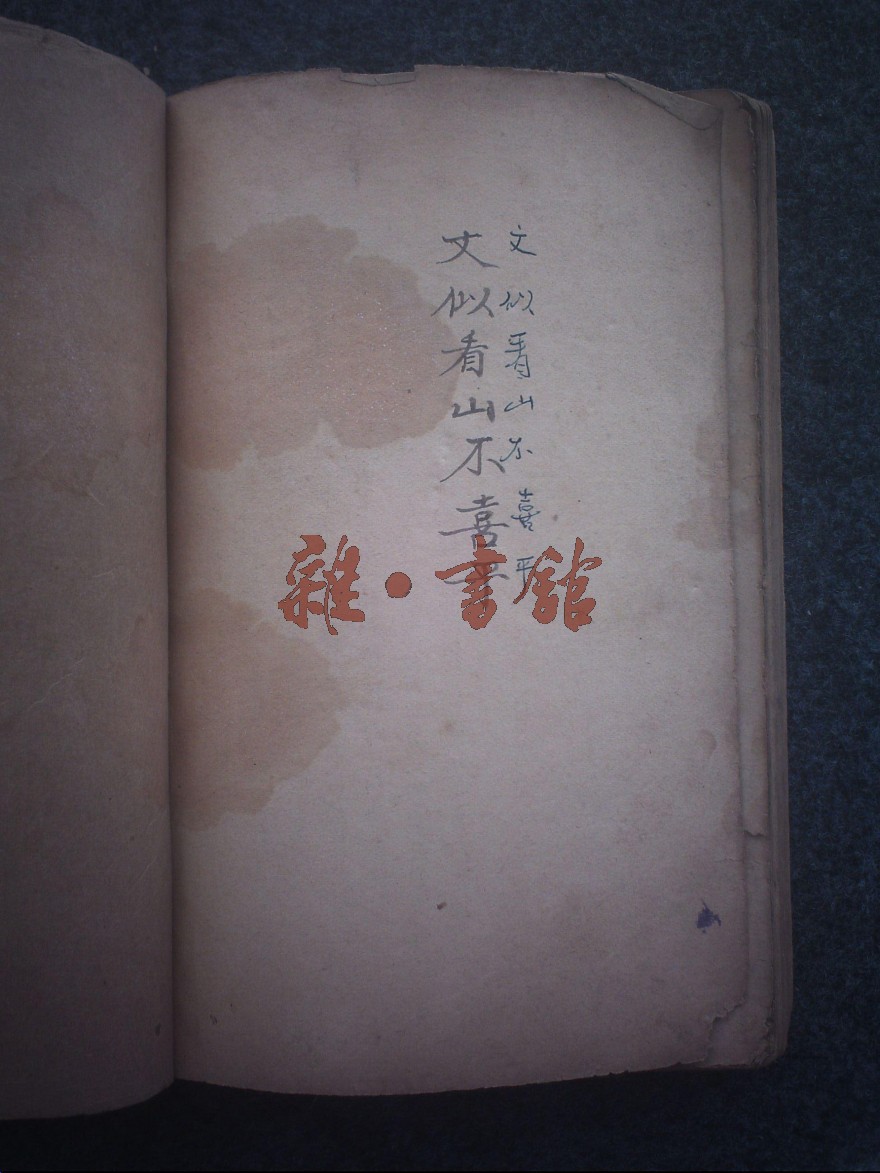 文似看山不喜平
文似看山不喜平
雜·書館